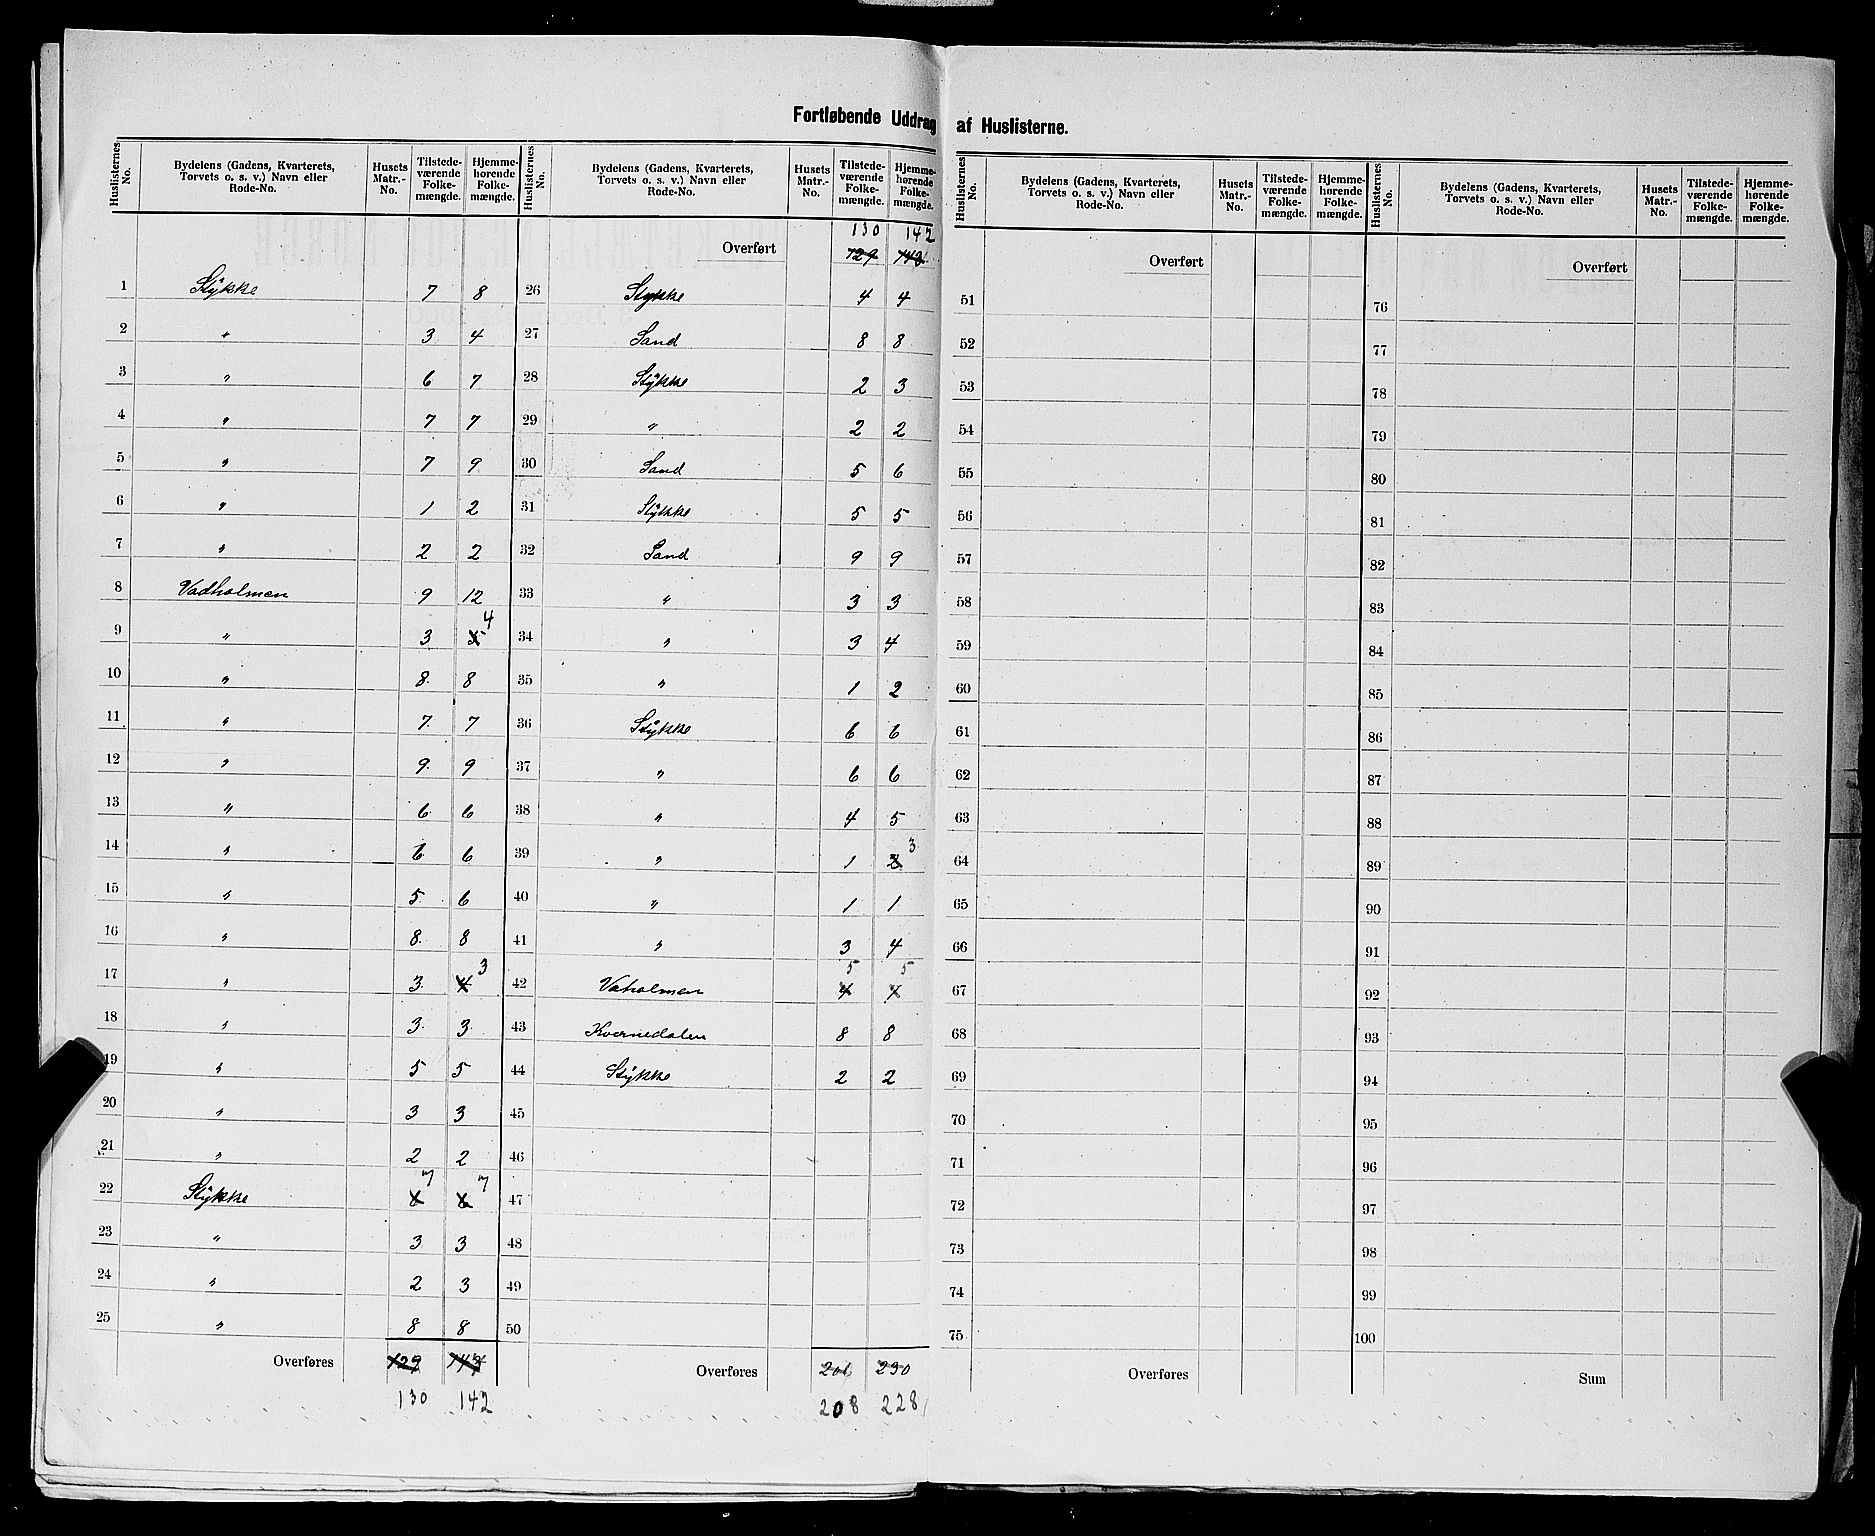 Fortløbende Uddrag af Huslisterne.
Huslisternes No. | Bydelens (Gadens, Kvarterets, Torvets o. s. v.) Navn eller Rode-No. | Husets Matr.-No. | Tilstedeværende Folkemængde. | Hjemmehørende Folkemængde.
1 Stykke 7 8
2 " 3 4
3 " 6 7
4 " 7 7
5 " 7 9
6 " 1 2
7 " 2 2
8 Vadholmen 9 12
9 " 3 5 4
10 " 8 8
11 " 7 7
12 " 9 9
13 " 6 6
14 " 6 6
15 " 5 6
16 " 8 8
17 " 3 4 3
18 " 3 3
19 " 5 5
20 " 3 3
21 " 2 2
22 Stykke 7 7
23 " 3 3
24 " 2 3
25 " 8 8
Overføres 129
130 142
Huslisternes No. | Bydelens (Gadens, Kvarterets, Torvets o. s. v.) Navn eller Rode-No. | Husets Matr.-No. | Tilstedeværende Folkemængde. | Hjemmehørende Folkemængde.
130 142
Overført 129
26 Stykke 4 4
27 Sand 8 8
28 Stykke 2 3
29 " 2 2
30 Sand 5 6
31 Stykke 5 5
32 Sand 9 9
33 " 3 3
34 " 3 4
35 " 1 2
36 Stykke 6 6
37 " 6 6
38 " 4 5
39 " 1 2 3
40 " 1 1
41 " 3 4
5 5
42 Vaholmen 4
43 Kvernedalen 8 8
44 Stykke 2 2
45
46
47
48
49
50
Overføres 206 230
208 228
Huslisternes No. | Bydelens (Gadens, Kvarterets, Torvets o. s. v.) Navn eller Rode-No. | Husets Matr.-No. | Tilstedeværende Folkemængde. | Hjemmehørende Folkemængde.
Overført
51
52
53
54
55
56
57
58
59
60
61
62
63
64
65
66
67
68
69
70
71
72
73
74
75
Overføres
Huslisternes No. | Bydelens (Gadens, Kvarterets, Torvets o. s. v.) Navn eller Rode-No. | Husets Matr.-No. | Tilstedeværende Folkemængde. | Hjemmehørende Folkemængde.
Overført
76
77
78
79
80
81
82
83
84
85
86
87
88
89
90
91
92
93
94
95
96
97
98
99
100
Sum